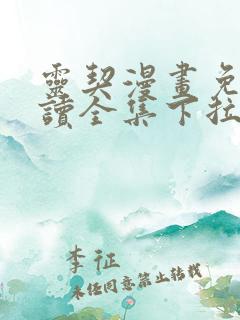 靈契漫畫免
讀全集下拉
李征
未经同意禁止转载